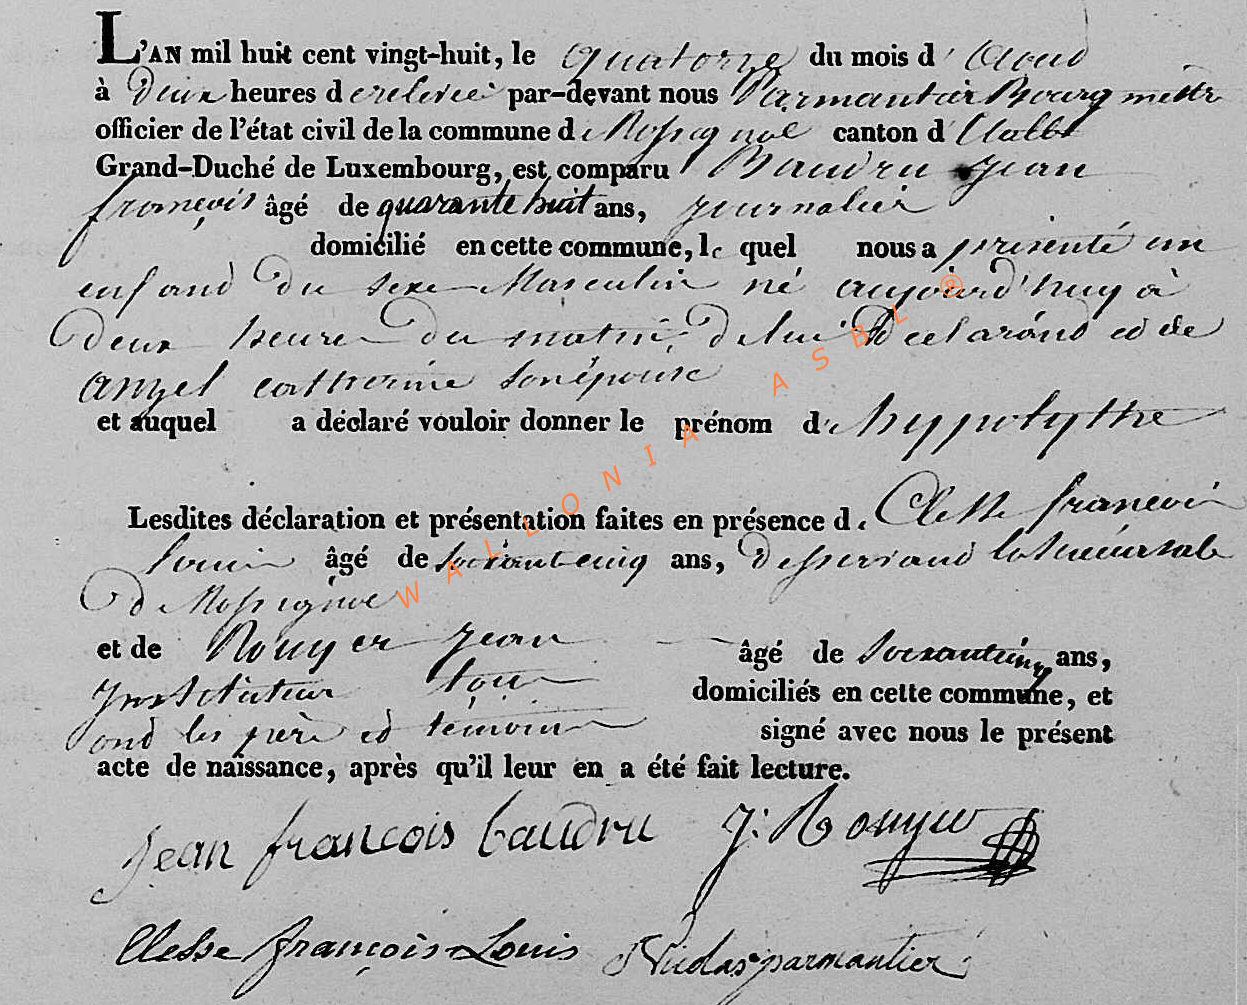 L'AN mil huit cent vingt-huit, le quatorze du mois d'Aoud
à deux heures d e relevée par-devant nous Parmantier Bourgmettr
officier de l'état civil de la commune de Rossignol canton d'
Grand-Duché de Luxembourg, est comparu Baudru Jean
françois âgé de quarante huit ans, journalier
domicilié en cette commune, le quel nous a présenté un
enfand du sexe Masculin né aujourd'huy à
deux heure du matin, de lui declarand ed de
catherine son épouse
et auquel a déclaré vouloir donner le prénom d'hyppolythe
Lesdites déclaration et présentation faites en présence de francois
Louis âgé de soixante cinq ans, desservand la succursale
de Rossignol
et de Rouyer Jean âgé de ans,
ynstituteur tous domiciliés en cette commune, et
ond les père ed témoins signé avec nous le présent
acte de naissance, après qu'il leur en a été fait lecture.
Jean françois baudru J: Rouyer
Clesse françois Louis Nicolas parmantier
WALLONIA ASBL ®